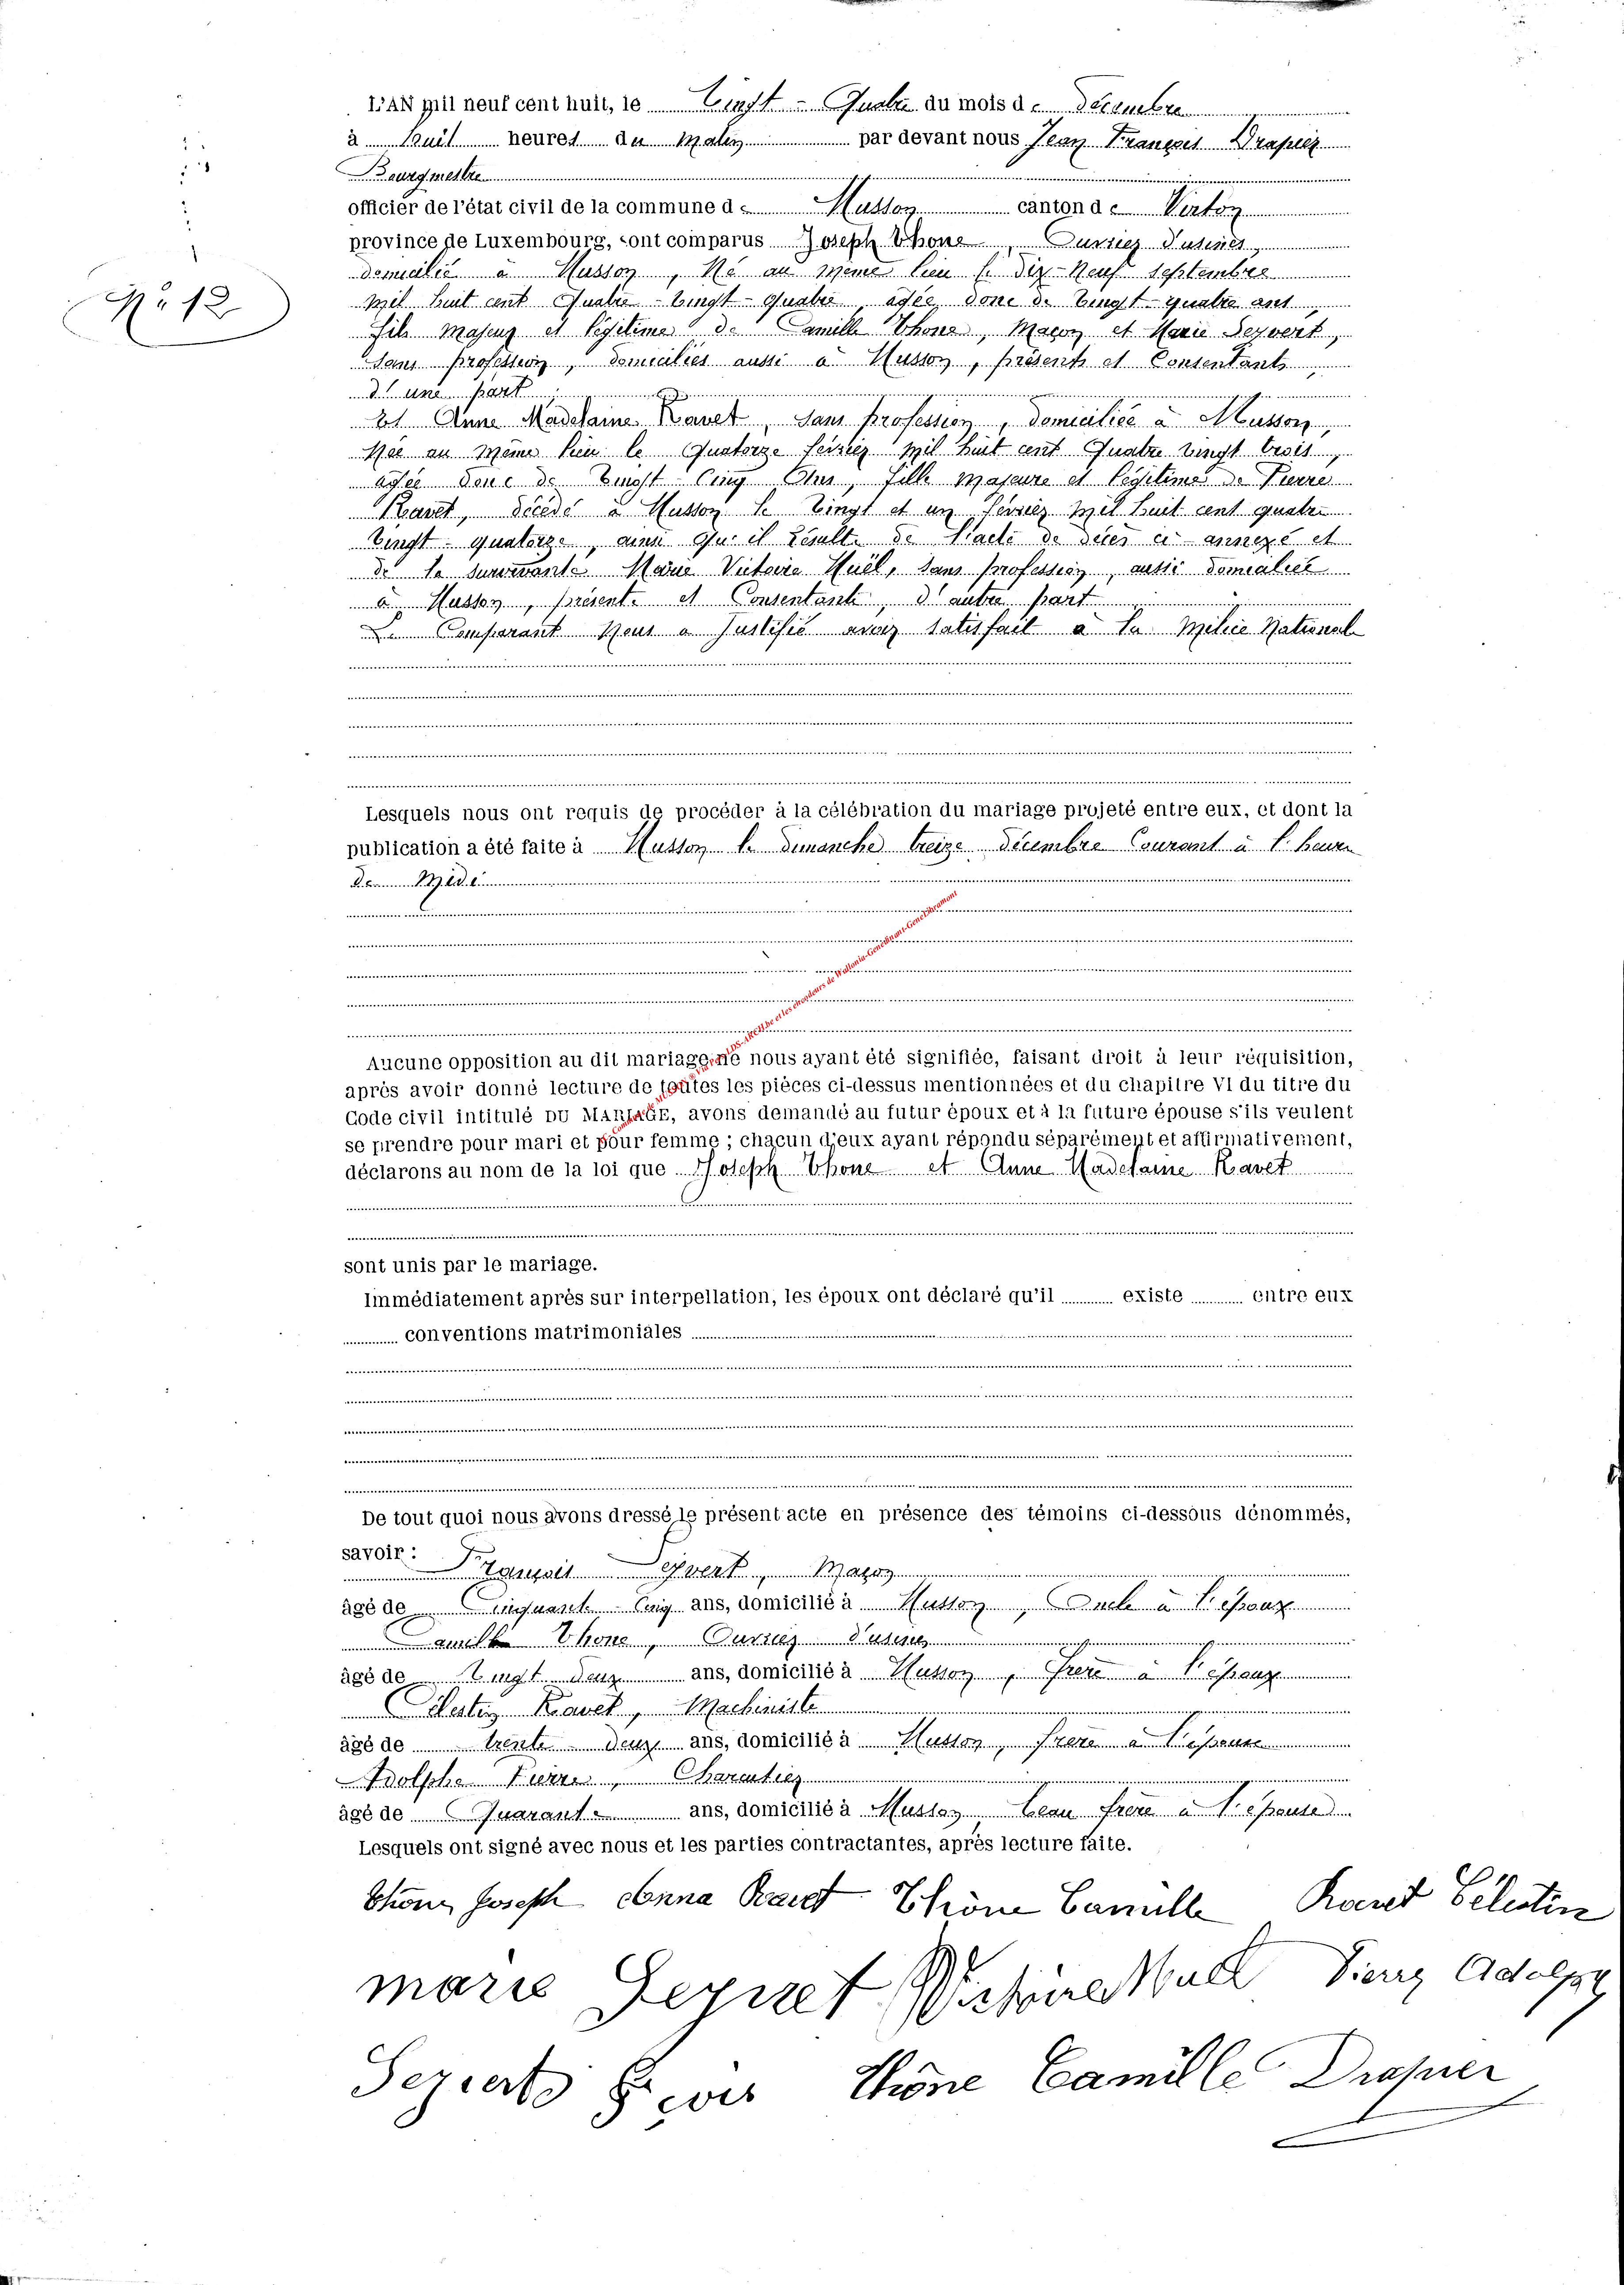 L'AN mil neuf cent huit, le Vingt - Quatre du mois de décembre
à huit heures du Matin par devant nous Jean François Drapier
Bourgmestre
officier de l'état civil de la commune de Musson canton de Virton
province de Luxembourg, sont comparus Joseph Thone, Ouvrier d'usines,
domicilié à Musson, Né au même lieu le dix-Neuf septembre
mil huit cent Quatre-vingt-quatre, agée donc de Vingt-quatre ans
fils majeur et légitime de Camille Thone, Maçon et Marie Seyvert,
sans profession, domiciliés aussi à Musson, présents et Consentants
d'une part
Et Anne Madelaine Ravet, sans profession, domiciliée à Musson,
Née au même lieu le Quatorze février mil huit cent Quatre vingt trois,
agée donc de Vingt-Cinq Ans, fille majeure et légitime de Pierre
Ravet, décédé à Musson le Vingt et un février mil huit cent quatre
vingt-quatorze, ainsi qu'il résulte de l'acte de décès ci-annexé et
de la survivante Marie Victoire Huël, sans profession, aussi domiciliée
à Musson, présente et Consentante, d'autre part
Le Comparant Nous a justifié avoir satisfait à la Milice National
Lesquels nous ont requis de procéder à la célébration du mariage projeté entre eux, et dont la
publication a été faite à Musson le dimanche treize décembre Courant à l'heure
de Midi
Aucune opposition au dit mariage ne nous ayant été signifiée, faisant droit à leur réquisition,
après avoir donné lecture de toutes les pièces ci-dessus mentionnées et du chapitre VI du titre du
Code civil intitulé DU MARIAGE, avons demandé au futur époux et à la future épouse s'ils veulent
se prendre pour mari et pour femme ; chacun d'eux ayant répondu séparément et affirmativement,
déclarons au nom de la loi que Joseph Thone et Anne Madelaine Ravet
sont unis par le mariage.
Immédiatement après sur interpellation, les époux ont déclaré qu'il existe entre eux
conventions matrimoniales
De tout quoi nous avons dressé le présent acte en présence des témoins ci-dessous dénommés,
savoir : François Seyvert, Maçon
âgé de Cinquante-Cinq ans, domicilié à Musson, Oncle à l'époux
Camille Thone, Ouvrier d'usines
âgé de Vingt-deux ans, domicilié à Musson, Frère à l'époux
Célestin Ravet, Machiniste
âgé de trente-deux ans, domicilié à Musson, frère à l'épouse
Adolphe Pierre, Charentier
âgé de Quarante ans, domicilié à Musson beau frère à l'épouse
Lesquels ont signé avec nous et les parties contractantes, après lecture faite.
Thone Joseph Anna Ravet Thone Camille Ravet Célestin
marie Seyvert Victoire Huel Pierre Adolphe
Thone Camille Drapier
No 12